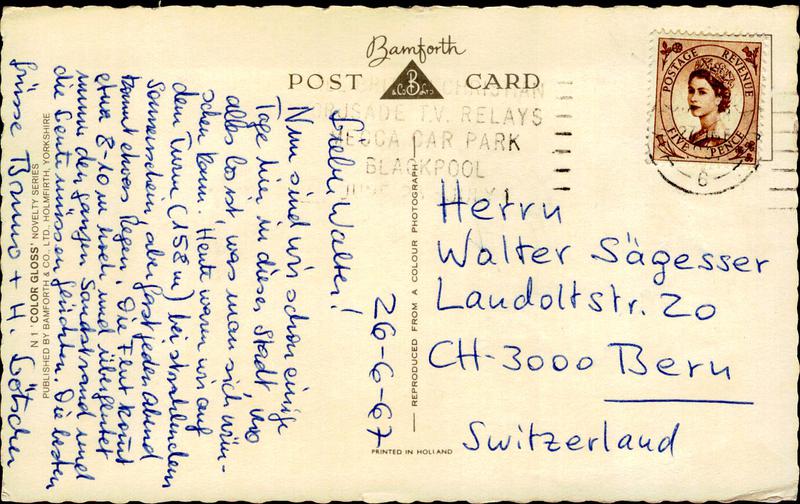 Bamforth
POST CARD
B
& Co Ltd
CHRISTIAN
CRUSADE T.V. RELAYS
MECCA CAR PARK
BLACKPOOL
POSTAGE REVENUE
FIVE PENCE
6
Lieber Walter!
Nun sind wir schon einige
Tage hier in dieser Stadt, wo
alles los ist, was man sich wün-
schen kann. Heute waren wir auf
dem Turm (158 m) bei strahlendem
Sonnenschein, aber fast jeden Abend
kommt etwas Regen. Die Flut kommt
etwa 8-10 m hoch und überflutet
immer den ganzen Sandstrand und
die Leute müssen flüchten. Die besten
Grüsse Bruno + H.
26-6-67
Herrn
Walter Sägesser
Landoltstr. 20
CH-3000 Bern
Switzerland
N 1 'COLOR GLOSS' NOVELTY SERIES
PUBLISHED BY BAMFORTH & CO., LTD., HOLMFIRTH, YORKSHIRE
REPRODUCED FROM A COLOUR PHOTOGRAPH
PRINTED IN HOLLAND